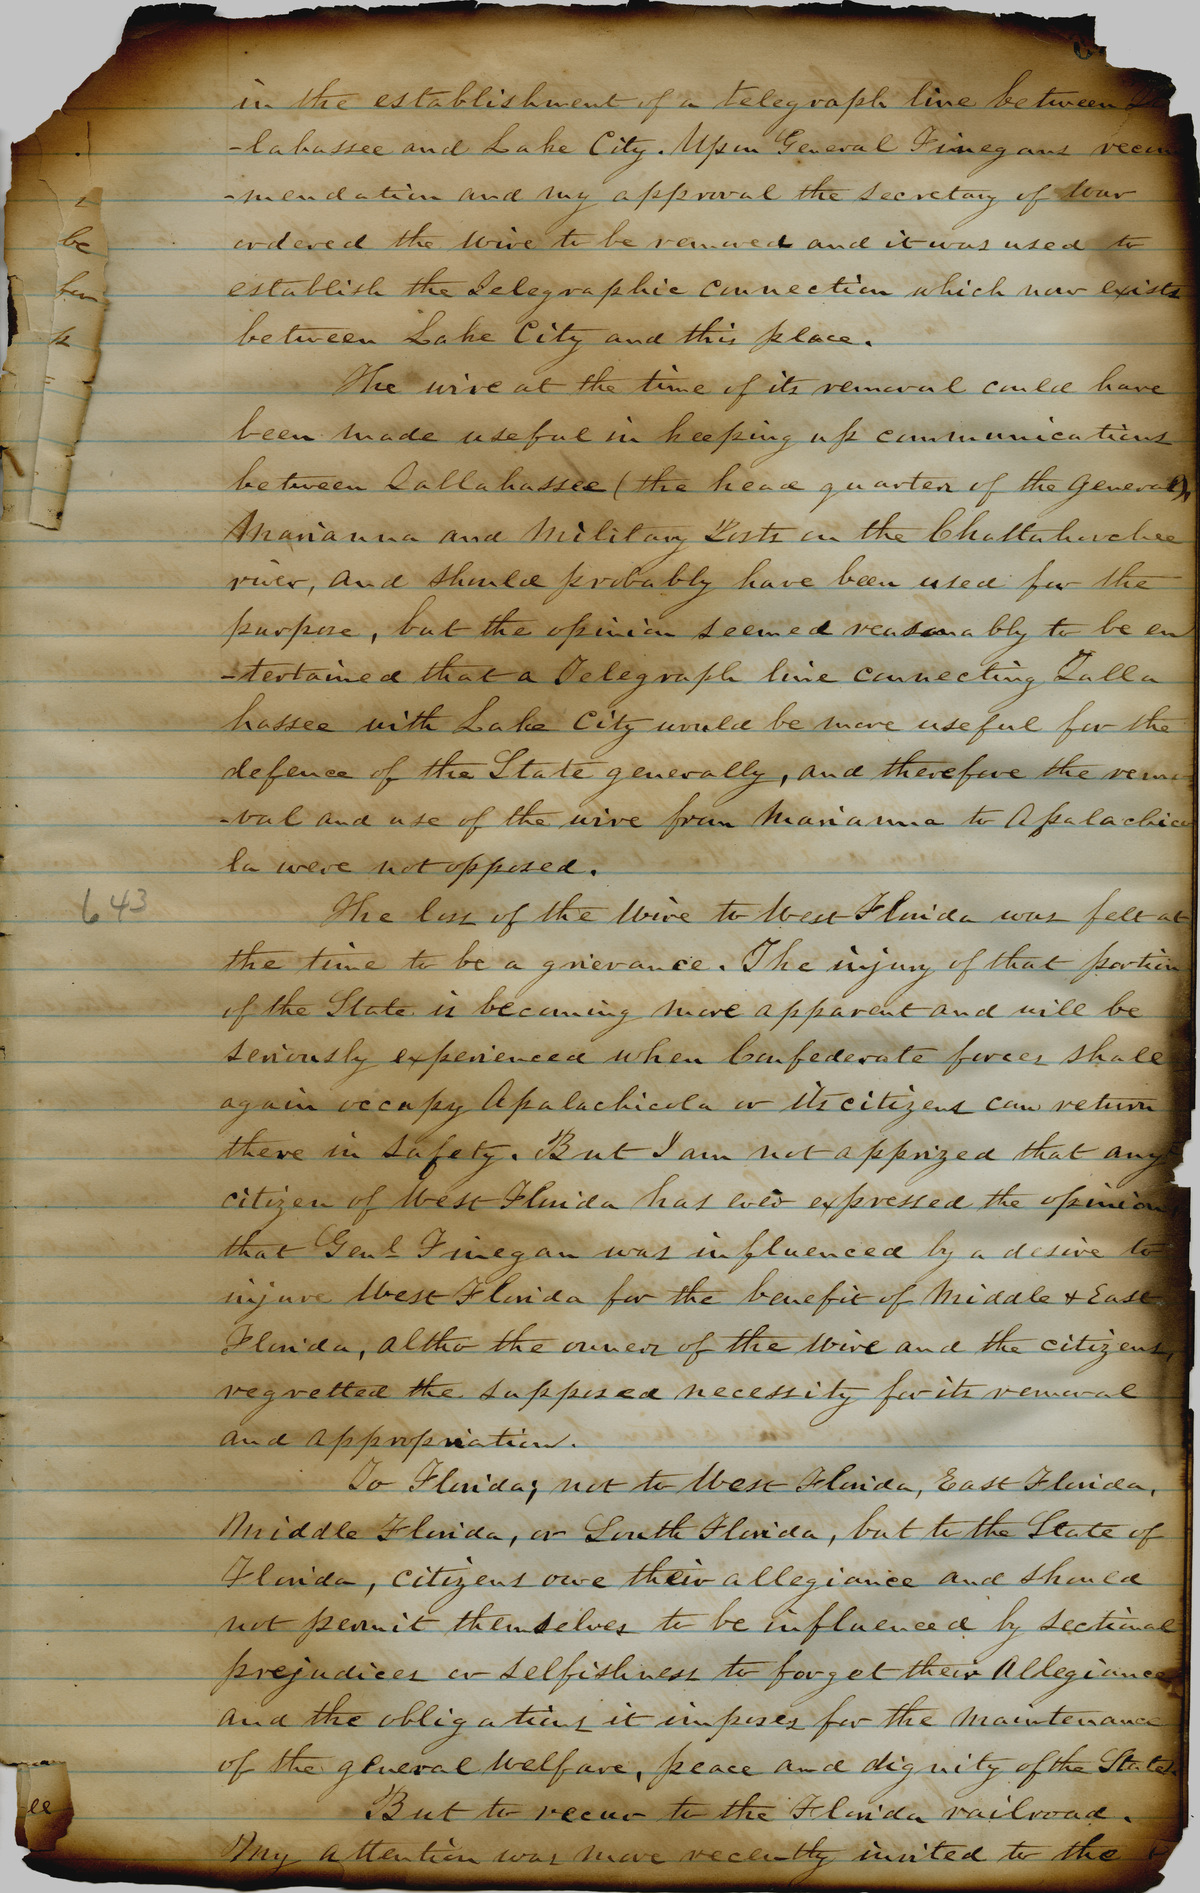 in the establishment of a telegraph line between
-lahassee and Lake City. Upon General Finegans recom
-mendation and my approval the Secretary of War
ordered the wire to be removed and it was used to
establish the Telegraphic connection which now exists
between Lake City and this place.
The wire at the time of its removal could have
been made useful in keeping up communications
between Tallahassee (the head quarters of the General),
Marianna and Military Posts on the Chattahoochee
river, and should probably have been used for the
purpose, but the opinion seemed reasonably to be en
-tertained that a Telegraph line connecting Talla
hassee with Lake City would be more useful for the
defence of the State generally, and therefore the remo
-val and use of the wire from Marianna to Apalachico
la were not opposed.
643
The loss of the Wire to West Florida was felt at
the time to be a grievance. The injury of that portion
of the State is becoming more apparent and will be
seriously experienced when Confederate forces shall
again occupy Apalachicola or its citizens can return
there in safety. But I am not apprized that any
citizen of West Florida has ever expressed the opinion
that Genl Finegan was influenced by a desire to
injure West Florida for the benefit of Middle & East
Florida, altho the owners of the Wire and the citizens,
regretted the supposed necessity for its removal
and appropriation.
To Florida; not to West Florida, East Florida,
Middle Florida, or South Florida, but to the State of
Florida, citizens owe their allegiance and should
not permit themselves to be influenced by sectional
prejudices or selfishness to forget their Allegiance
and the obligations it imposes for the maintenance
of the general Welfare, peace and dignity of the State.
But to recur to the Florida railroad.
My attention was more recently invited to the
be
ee